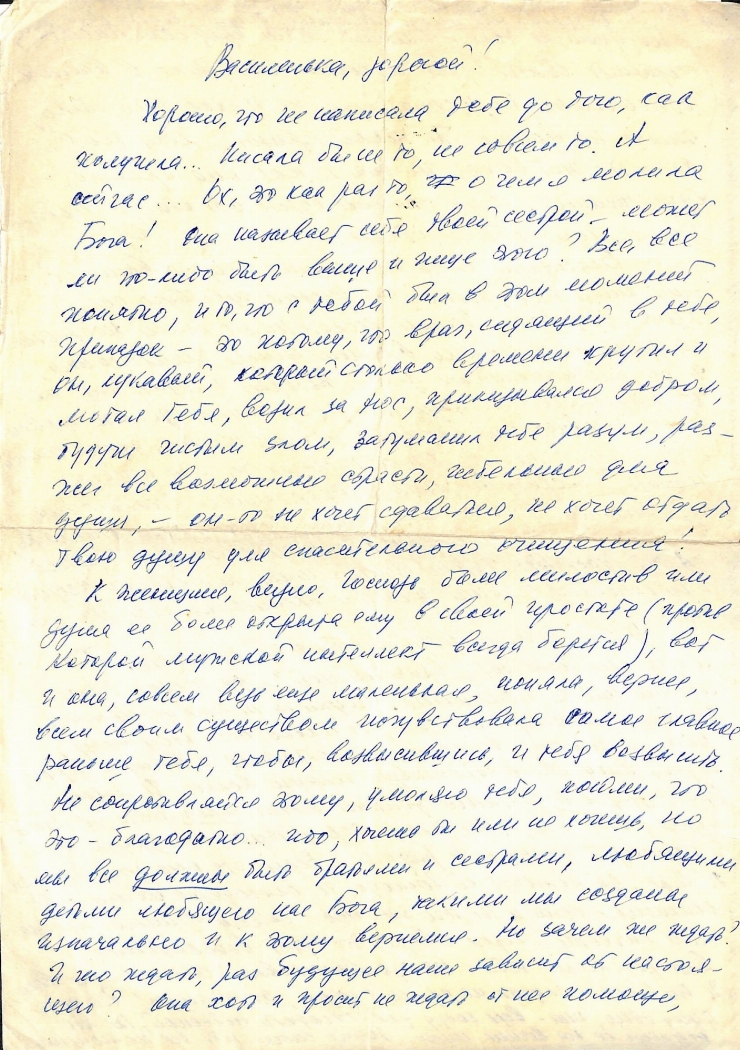 Василенька, дорогой!
Хорошо, что не написала тебе до того, как
получила... Писала бы не то, не совсем то. А
сейчас... Ох, это как раз то, о чем я молила
Бога! Она называет себя твоей сестрой – может
ли что-либо быть выше и чище этого? Все, все
понятно, и то, что с тобой был в этот момент
припадок – это потому, что враг, сидящий в тебе,
он, лукавый, который столько времени крутил и
мотал тебя, водил за нос, прикидывался добром,
будучи чистым злом, затуманил тебе разум, раз-
жег все возможные страсти, гибельные для
души, – он-то не хочет сдаваться, не хочет отдать
твою душу для спасительного очищения!
К женщине, видно, Господь более милостив или
душа ее более открыта ему в своей простоте (против
которой мужской интеллект всегда борется), вот
и она, совсем ведь еще маленькая, поняла, вернее,
всем своим существом почувствовала самое главное
раньше тебя, чтобы, возвысившись, и тебя возвысить.
Не сопротивляйся этому, умоляю тебя, пойми, что
это – благодатно... что, хочешь ты или не хочешь, но
мы все должны быть братьями и сестрами, любящими
детьми любящего нас Бога, такими мы созданы
изначально и к этому вернемся. Но зачем же ждать?
И что ждать, раз будущее наше зависит от настоя-
щего? Она хоть и просит не ждать от нее помощи,